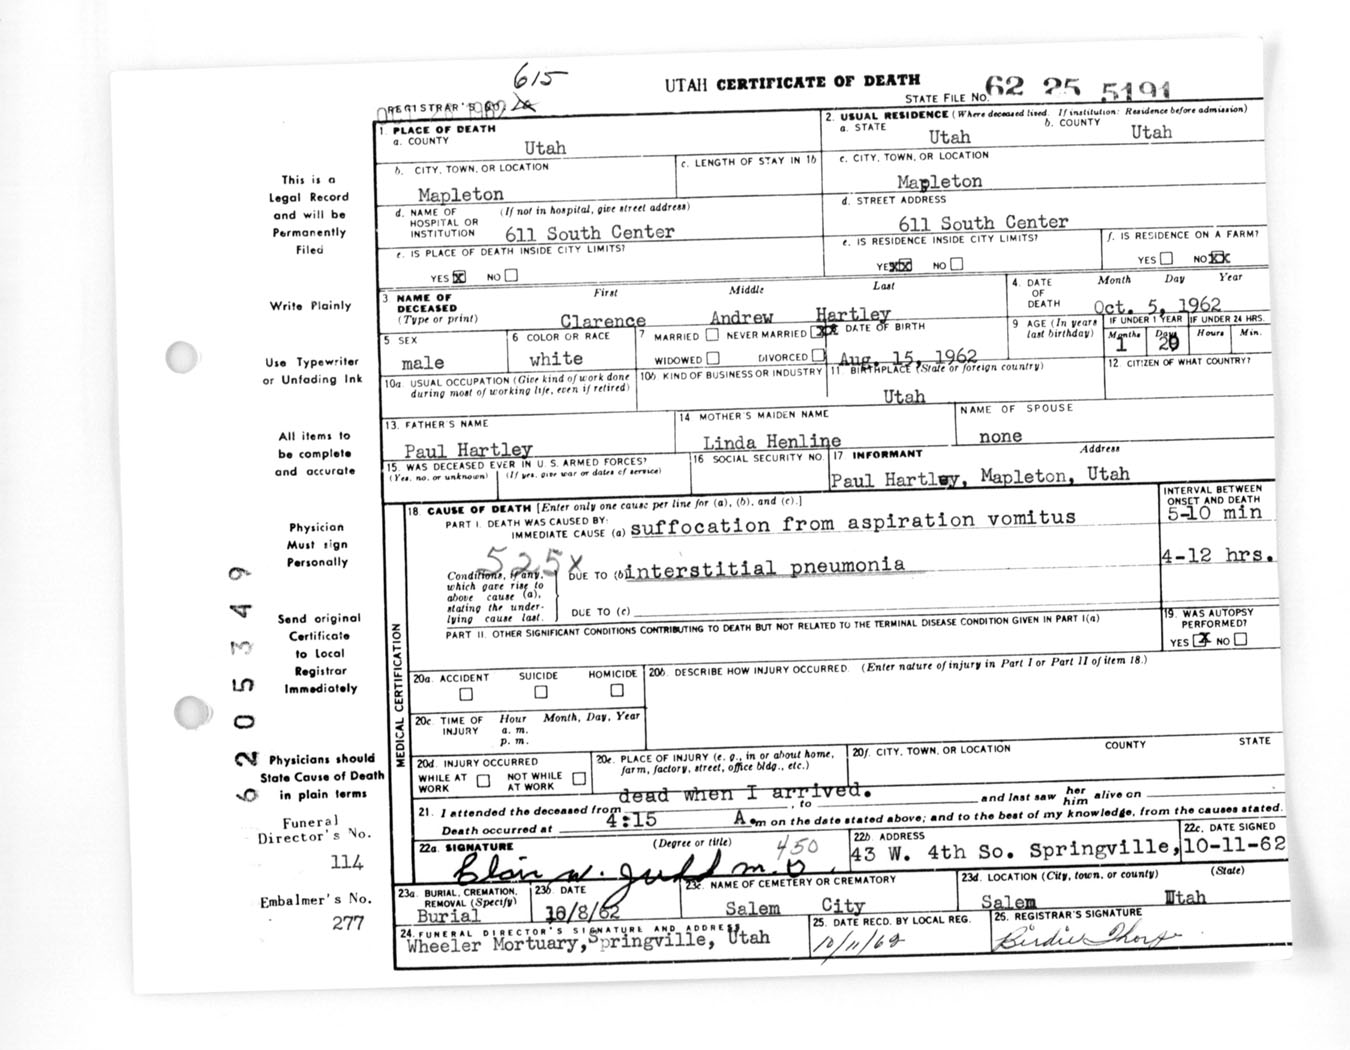 615
UTAH CERTIFICATE OF DEATH
REGISTRAR'S NO.
STATE FILE NO. 62 25 5191
1. PLACE OF DEATH
a. COUNTY Utah
2. USUAL RESIDENCE (Where deceased lived. If institution: Residence before admission)
a. STATE Utah b. COUNTY Utah
b. CITY, TOWN, OR LOCATION Mapleton
c. LENGTH OF STAY IN 1b
c. CITY, TOWN, OR LOCATION Mapleton
d. NAME OF HOSPITAL OR INSTITUTION (If not in hospital, give street address) 611 South Center
d. STREET ADDRESS 611 South Center
e. IS PLACE OF DEATH INSIDE CITY LIMITS?
YES X NO
e. IS RESIDENCE INSIDE CITY LIMITS?
YES XX NO
f. IS RESIDENCE ON A FARM?
YES NO XX
3 NAME OF DECEASED (Type or print)
First Middle Last
Clarence Andrew Hartley
4. DATE OF DEATH Month Day Year
Oct. 5, 1962
5 SEX male
6 COLOR OR RACE white
7 MARRIED NEVER MARRIED XX
WIDOWED DIVORCED
DATE OF BIRTH Aug. 15, 1962
9 AGE (In years last birthday)
IF UNDER 1 YEAR IF UNDER 24 HRS.
Months 1 Days 20 Hours Min.
10a. USUAL OCCUPATION (Give kind of work done during most of working life, even if retired)
10b. KIND OF BUSINESS OR INDUSTRY
11. BIRTHPLACE (State or foreign country)
Utah
12 CITIZEN OF WHAT COUNTRY?
13. FATHER'S NAME
Paul Hartley
14 MOTHER'S MAIDEN NAME
Linda Henline
NAME OF SPOUSE
none
15. WAS DECEASED EVER IN U.S. ARMED FORCES?
(Yes, no, or unknown) (If yes, give war or dates of service)
16 SOCIAL SECURITY NO.
17 INFORMANT Address
Paul Hartley, Mapleton, Utah
MEDICAL CERTIFICATION
18. CAUSE OF DEATH [Enter only one cause per line for (a), (b), and (c).]
INTERVAL BETWEEN ONSET AND DEATH
PART I. DEATH WAS CAUSED BY:
IMMEDIATE CAUSE (a) suffocation from aspiration vomitus 5-10 min
525X
Conditions, if any, which gave rise to above cause (a), stating the underlying cause last.
DUE TO (b) interstitial pneumonia 4-12 hrs.
DUE TO (c)
PART II. OTHER SIGNIFICANT CONDITIONS CONTRIBUTING TO DEATH BUT NOT RELATED TO THE TERMINAL DISEASE CONDITION GIVEN IN PART I(a)
19. WAS AUTOPSY PERFORMED?
YES X NO
20a. ACCIDENT SUICIDE HOMICIDE
20b. DESCRIBE HOW INJURY OCCURRED. (Enter nature of injury in Part I or Part II of item 18.)
20c. TIME OF INJURY Hour Month, Day, Year
a. m.
p. m.
20d. INJURY OCCURRED
WHILE AT WORK NOT WHILE AT WORK
20e. PLACE OF INJURY (e. g., in or about home, farm, factory, street, office bldg., etc.)
20f. CITY, TOWN, OR LOCATION COUNTY STATE
dead when I arrived.
21. I attended the deceased from , to and last saw her him alive on
Death occurred at 4:15 A.m on the date stated above; and to the best of my knowledge, from the causes stated.
22a. SIGNATURE (Degree or title) 450
M.D.
22b. ADDRESS
43 W. 4th So. Springville,
22c. DATE SIGNED
10-11-62
23a. BURIAL, CREMATION, REMOVAL (Specify)
Burial
23b. DATE
10/8/62
23c. NAME OF CEMETERY OR CREMATORY
Salem City
23d. LOCATION (City, town, or county) (State)
Salem Utah
24. FUNERAL DIRECTOR'S SIGNATURE AND ADDRESS
Wheeler Mortuary, Springville, Utah
25. DATE RECD. BY LOCAL REG.
10/11/62
26. REGISTRAR'S SIGNATURE
Birdie Thorpe
This is a
Legal Record
and will be
Permanently
Filed
Write Plainly
Use Typewriter
or Unfading Ink
All items to
be complete
and accurate
Physician
Must sign
Personally
Send original
Certificate
to Local
Registrar
Immediately
Physicians should
State Cause of Death
in plain terms
Funeral
Director's No.
114
Embalmer's No.
277
6205349